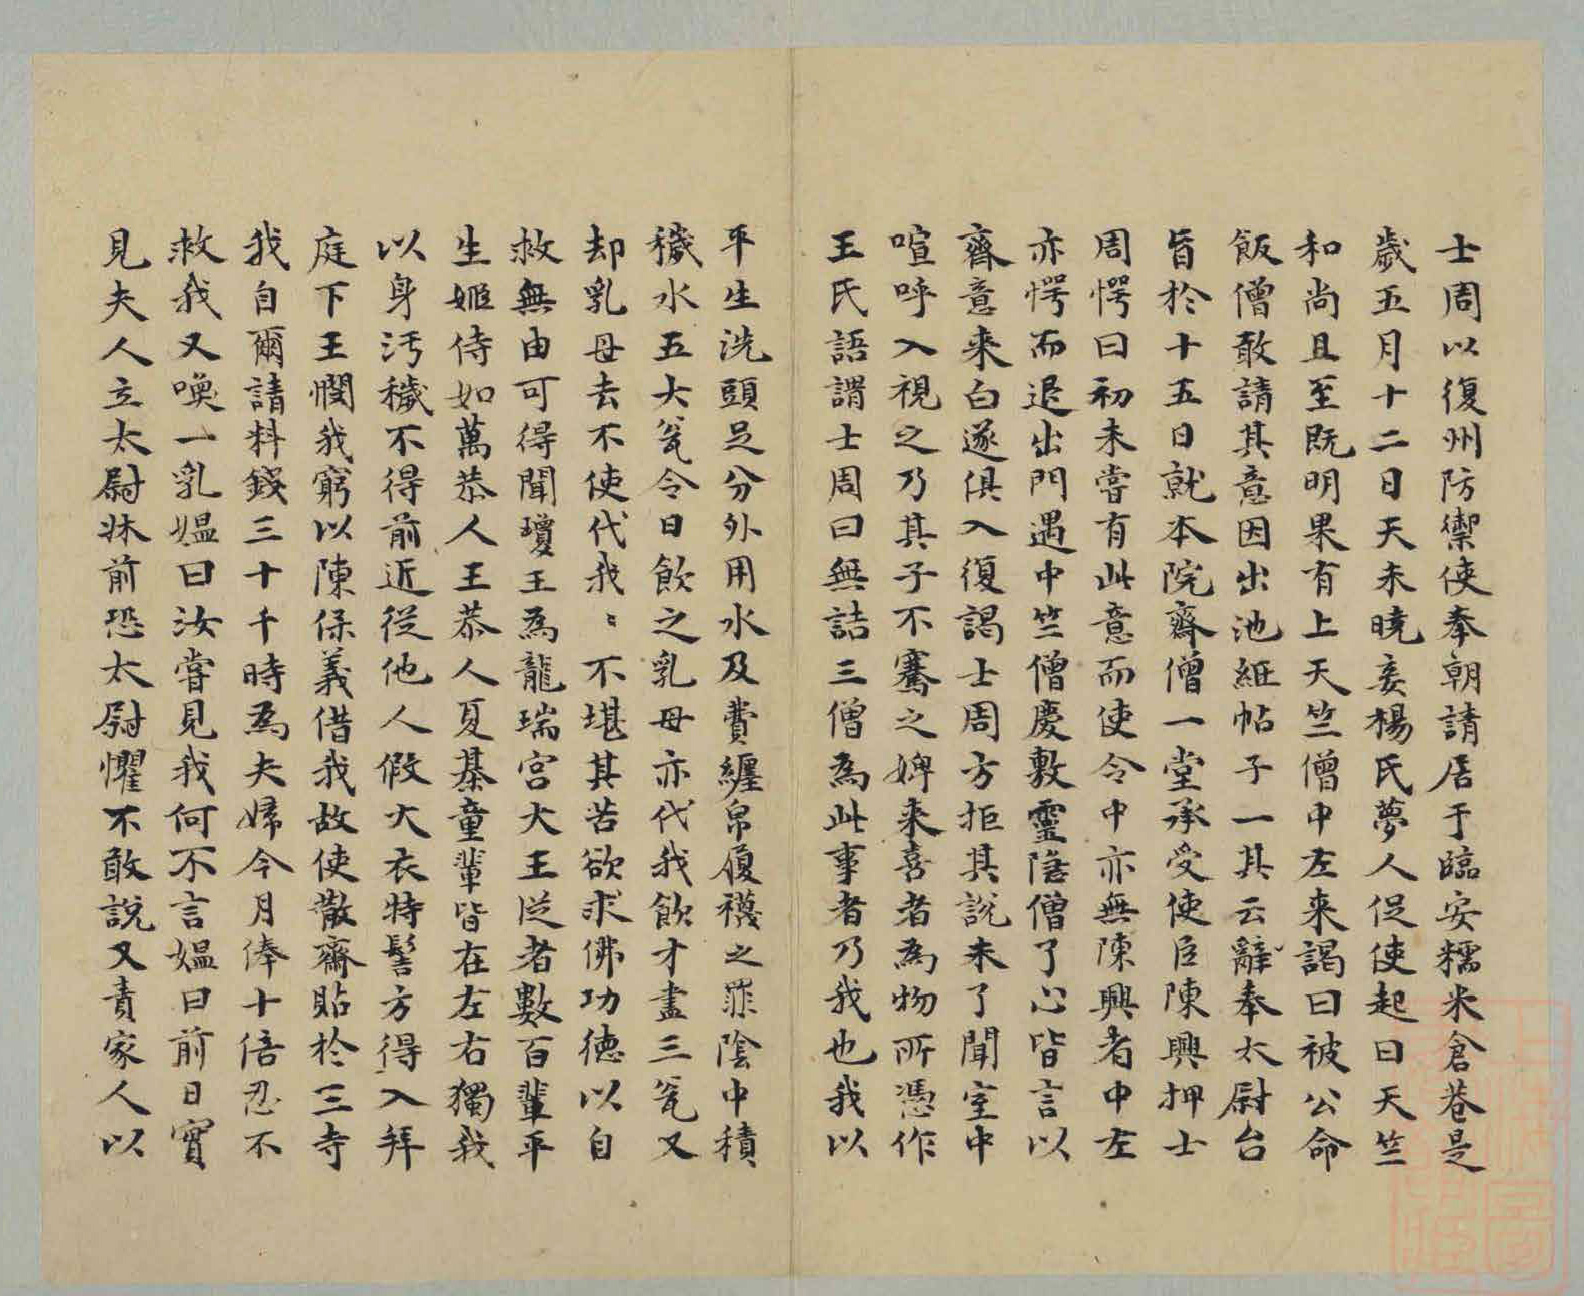 士周以復州防禦使奉朝請居于臨安糯米倉巷是
歲五月十二日天未曉妾楊氏夢人促使起曰天竺
和尚且至既明果有上天竺僧中左来謁曰被公命
飯僧敢請其意因出池紙帖子一其云辭奉太尉台
旨於十五日就本院齋僧一堂承受使臣陳興押士
周愕曰初未嘗有此意而使令中亦無陳興者中左
亦愕而退出門遇中竺僧慶敷靈隐僧了心皆言以
齋意来白遂俱入復謁士周方拒其說未了聞室中
喧呼入視之乃其子不騫之婢来喜者為物所憑作
王氏語謂士周曰無詰三僧為此事者乃我也我以
平生洗頭足分外用水及費纏帛履襪之罪陰中積
穢水五大瓮令日飲之乳母亦代我飲才盡三瓮又
却乳母去不使代我〻不堪其苦欲求佛功德以自
救無由可得聞瓊王為龍瑞宫大王従者數百輩平
生姬侍如萬恭人王恭人夏棊童輩皆在左右獨我
以身汚穢不得前近從他人假大衣特髻方得入拜
庭下王憫我窮以陳保義借我故使散齋貼於三寺
我自爾請料錢三十千時為夫婦今月俸十倍忍不
救我又喚一乳媪曰汝嘗見我何不言媪曰前日實
見夫人立太尉牀前恐太尉懼不敢説又責家人以